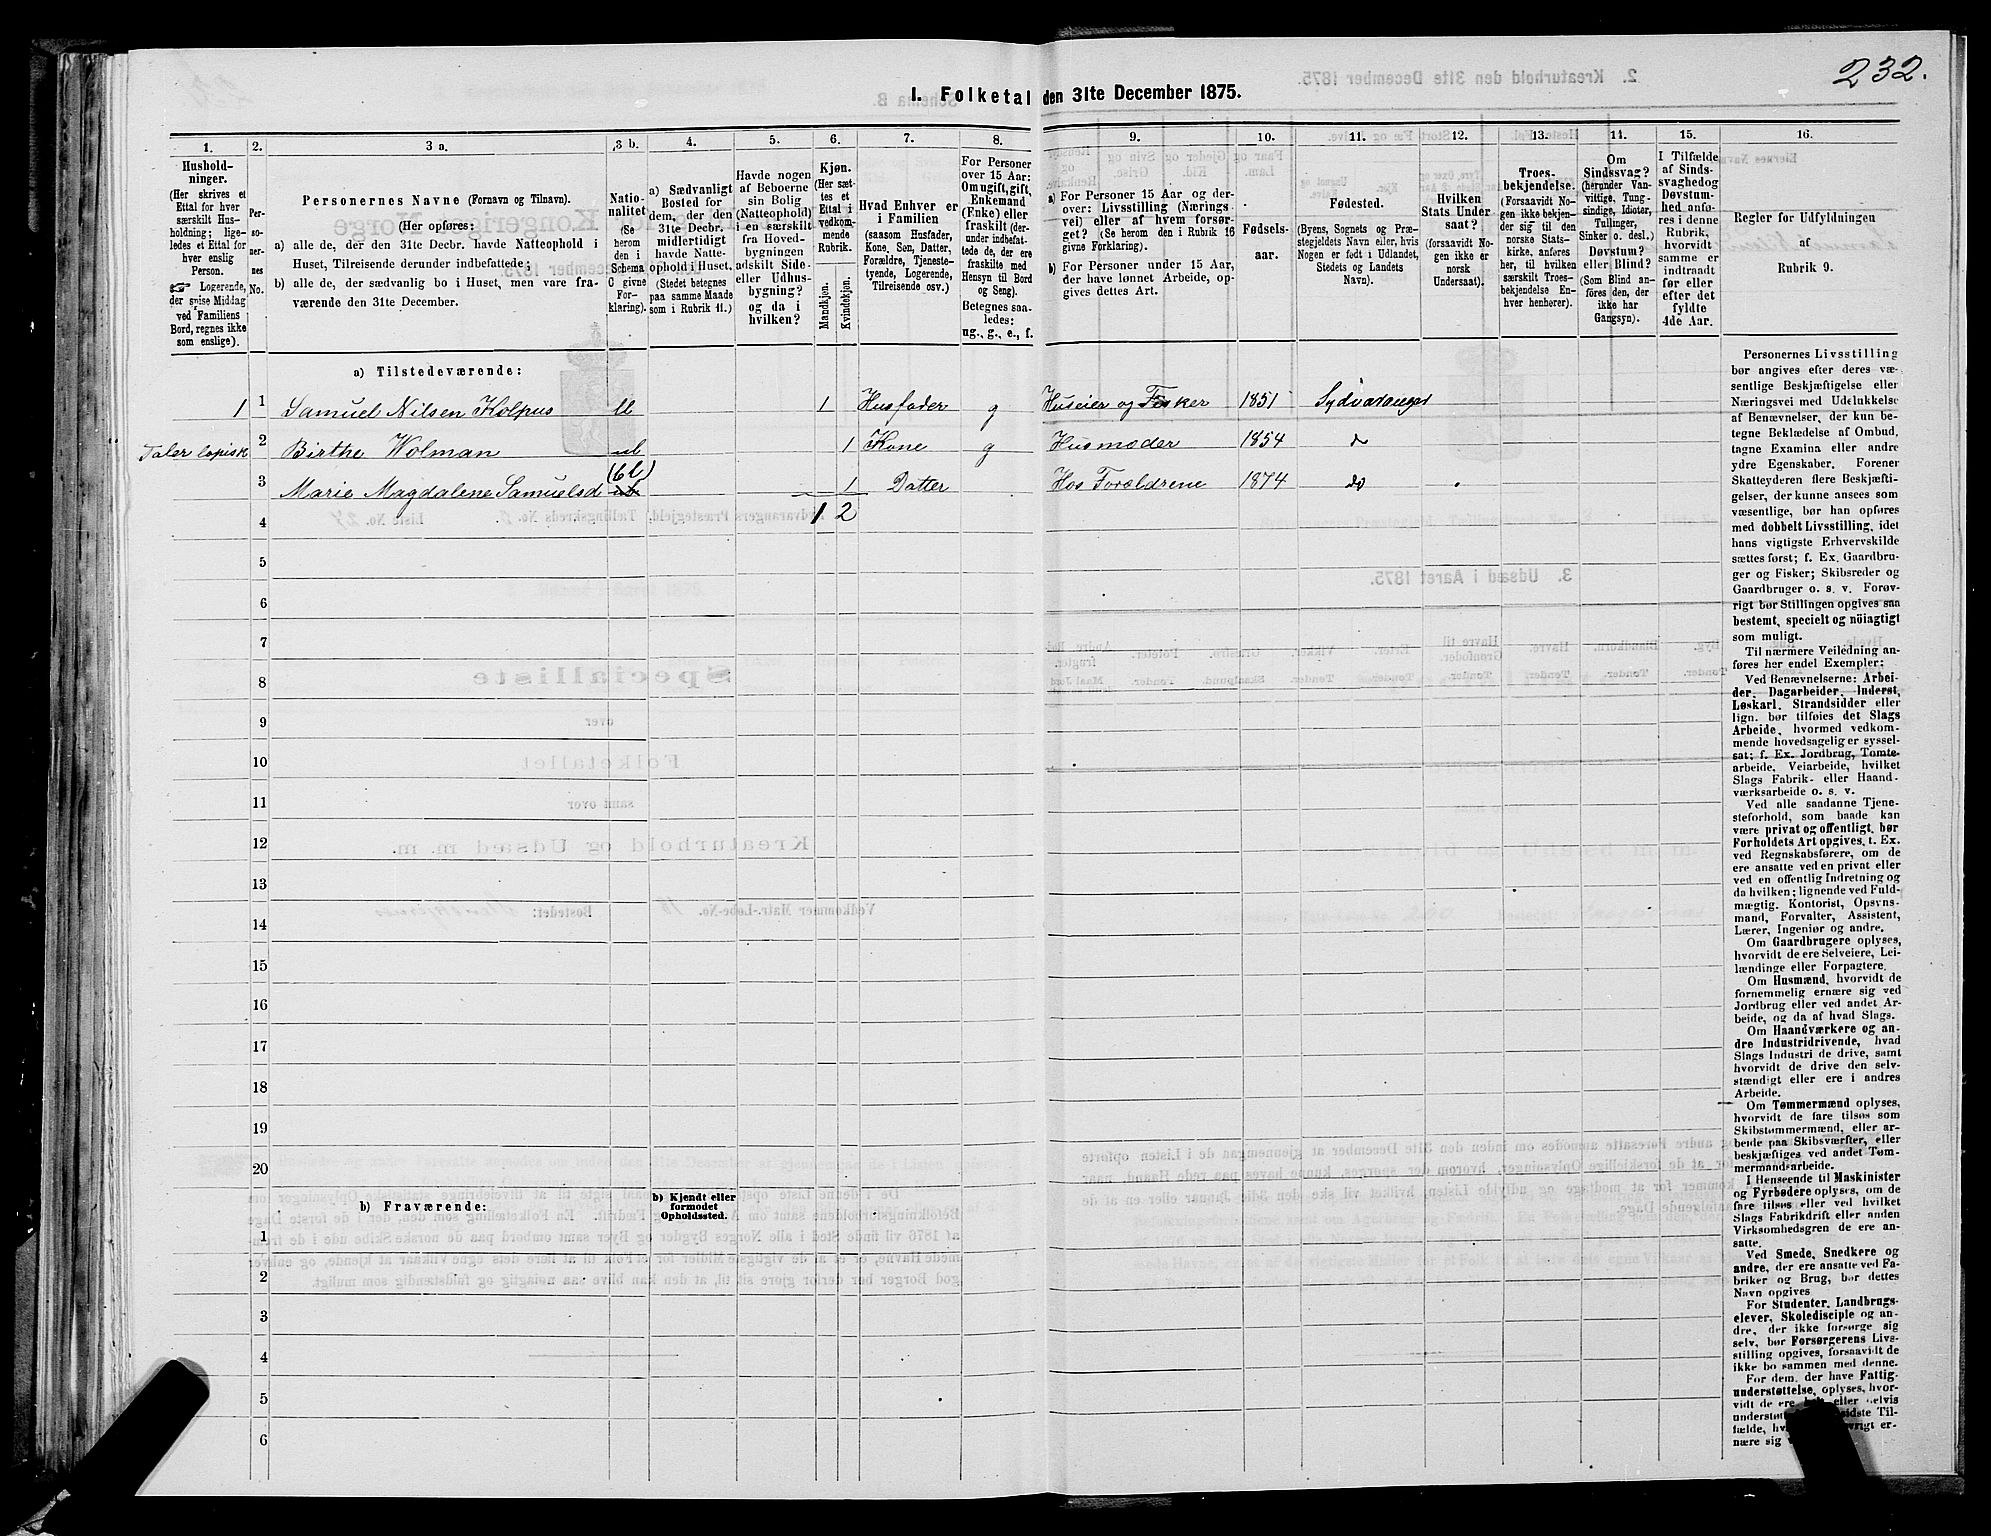 232.
I. Folketal den 31te December 1875.
1. 2. 3 a. 3 b. 4. 5. 6. 7. 8. 9. 10. 11. 12. 13. 14. 15. 16.
Hushold-
ninger.
(Her skrives et
Ettal for hver
særskilt Hus-
holdning; lige-
ledes et Ettal for
hver enslig
Person.
☞ Logerende,
der spise Middag
ved Familiens
Bord, regnes ikke
som enslige).
Per-
so-
ner-
nes
No.
Personernes Navne (Fornavn og Tilnavn).
(Her opføres:
a) alle de, der den 31te Decbr. havde Natteophold i
Huset, Tilreisende derunder indbefattede;
b) alle de, der sædvanlig bo i Huset, men vare fra-
værende den 31te December.
Natio-
nalitet
(Se
herom
den i
Schema
C givne
For-
klaring).
a) Sædvanligt
Bosted for
dem, der den
31te Decbr.
midlertidigt
havde Natte-
ophold i Huset.
(Stedet betegnes
paa samme Maade
som i Rubrik 11.)
Havde nogen
af Beboerne
sin Bolig
(Natteophold)
i en særskilt
fra Hoved-
bygningen
adskilt Side-
eller Udhus-
bygning?
og da i
hvilken?
Kjøn.
(Her sæt-
tes et
Ettal i
vedkom-
mende
Rubrik.
Mandkjøn.
Kvindekjøn.
Hvad Enhver er
i Familien
(saasom Husfader,
Kone, Søn, Datter,
Forældre, Tjeneste-
tyende, Logerende,
Tilreisende osv.)
For Personer
over 15 Aar:
Om ugift, gift,
Enkemand
(Enke) eller
fraskilt (der-
under indbefat-
tede de, der ere
fraskilte med
Hensyn til Bord
og Seng).
Betegnes saa-
ledes:
ug., g., e., f.
a) For Personer 15 Aar og der-
over: Livsstilling (Nærings
vei) eller af hvem forsør-
get? (Se herom Rubrik 16
givne Forklaring).
b) For Personer under 15 Aar,
der have lønnet Arbeide, op-
gives dettes Art.
Fødsels-
aar.
Fødested.
(Byens, Sognets og Præ-
stegjeldets Navn eller, hvis
Nogen er født i Udlandet,
Stedets og Landets
Navn).
Hvilken
Stats Under
saat?
(forsaavidt No-
gen ikke er
norsk
Undersaat).
Troes-
bekjendelse.
(Forsaavidt No-
gen ikke bekjen-
der sig til den
norske Stats-
kirke, anføres
her, til hvilken
særskilt Troes-
bekjendelse En-
hver henhører).
Om
Sindssvag?
(herunder Van-
vittige, Tung-
sindige, Idioter,
Tullinger,
Sinker o. desl.)
Døvstum?
eller Blind?
(Som Blind an-
føres den, der
ikke har
Gangsyn).
I Tilfælde
af Sinds-
svaghed og
Døvstum-
hed anfø-
res i denne
Rubrik,
hvorvidt
samme er
indtraadt
før eller
efter det
fyldte
4de Aar.
Regler for Udfyldningen
af
Rubrik 9.
a) Tilstedeværende:
1 1 Samuel Nilsen Kolpus 1 Husfader g Huseier og Fisker 1851 Sydvaranger
Taler lapisk 2 Birthe Wolman 1 Kone g Husmoder 1854 do
3 Marie Magdalene Samuelsd 1 Datter Hos Forældrene 1874 do
4 1 2
5
6
7
8
9
10
11
12
13
14
15
16
17
18
19
20
b) Fraværende:
b) Kjendt eller
formodet
Opholdssted.
1
2
3
4
5
6
Personernes Livsstilling
bør angives efter deres væ-
sentlige Beskjæftigelse eller
Næringsvei med Udelukkelse
af Benævnelser, der kun be-
tegne Beklædelse af Ombud,
tagne Examina eller andre
ydre Egenskaber. Forener
Skatteyderen flere Beskjæfti-
gelser, der kunne ansees som
væsentlige, bør han opføres
med dobbelt Livsstilling, idet
hans vigtigste Erhvervskilde
sættes først; f. Ex. Gaardbru-
ger og Fisker; Skibsreder og
Gaardbruger o. s. v. Forøv-
rigt bør Stillingen opgives saa
bestemt, specielt og nöiagtigt
som muligt.
Til nærmere Veiledning an-
føres her endel Exempler:
Ved Benævnelserne: Arbei-
der, Dagarbeider, Inderst,
Løskarl, Strandsidder eller
lign. bør tilføies det Slags
Arbeide, hvormed vedkom-
mende hovedsagelig er syssel-
sat; f. Ex. Jordbrug, Tomte-
arbeide, Veiarbeide, hvilket
Slags Fabrik- eller Haand-
værksarbeide o. s. v.
Ved alle saadanne Tjene-
steforhold, som baade kan
være privat og offentligt, bør
Forholdets Art opgives, t. Ex.
ved Regnskabsførere, om de
ere ansatte ved en privat eller
ved en offentlig Indretning og
da hvilken; lignende ved Fuld-
mægtig, Kontorist, Opsyns-
mand, Forvalter, Assistent,
Lærer, Ingeniør og andre.
Om Gaardbrugere oplyses,
hvorvidt de ere Selveiere, Lei-
lændinge eller Forpagtere.
Om Husmænd, hvorvidt de
fornemmelig ernære sig ved
Jordbrug eller ved andet Ar-
beide, og da af hvad Slags.
Om Haandværkere og an-
dre Industridrivende, hvad
Slags Industri de drive, samt
hvorvidt de drive den selv-
stændigt eller ere i andres
Arbeide.
Om Tømmermænd oplyses,
hvorvidt de fare tilsøs som
Skibstømmermænd, eller ar-
beide paa Skibsværfter, eller
beskjæftiges ved andet Tøm-
mermandsarbeide.
I Henseende til Maskinister
og Fyrbødere oplyses, om de
fare tilsøs eller ved hvilket
Slags Fabrikdrift eller anden
Virksomhedsgren de ere an-
satte.
Ved Smede, Snedkere og
andre, der ere ansatte ved Fa-
briker og Brug, bør dettes
Navn opgives
For Studenter, Landbrugs-
elever, Skoledisciple og an-
dre, der ikke forsørge sig
selv, bør Forsørgerens Livs-
stilling opgives, forsaavidt de
ikke bo sammen med denne.
For dem, der have Fattig-
understøttelse, oplyses, hvor-
vidt de ere eller delvis
understøt sidste Til-
fælde, hv vrigt er-
nære sig